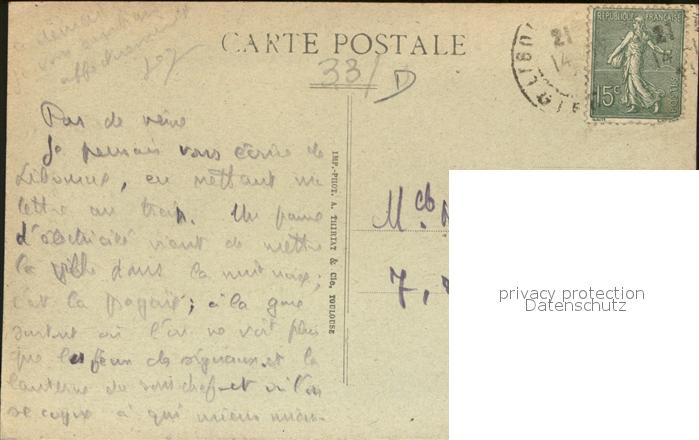 à demain
je vous
affectueusement
CARTE POSTALE
331
D
RÉPUBLIQUE FRANÇAISE
15c
21
14
21
14
LIBOU
Pas de veine
Je pensais vous écrire de
Libourne, en mettant ma
lettre au train. Une panne
d'électricité vient de mettre
la ville dans la nuit noire ;
c'est la pagaïe ; à la gare
surtout où l'on ne voit plus
que les feux de signaux et la
lanterne du sous chef et où l'on
se cogne à qui mieux mieux.
IMP.-PHOT. A. THIRIAT & Cie, TOULOUSE
7,
privacy protection
Datenschutz